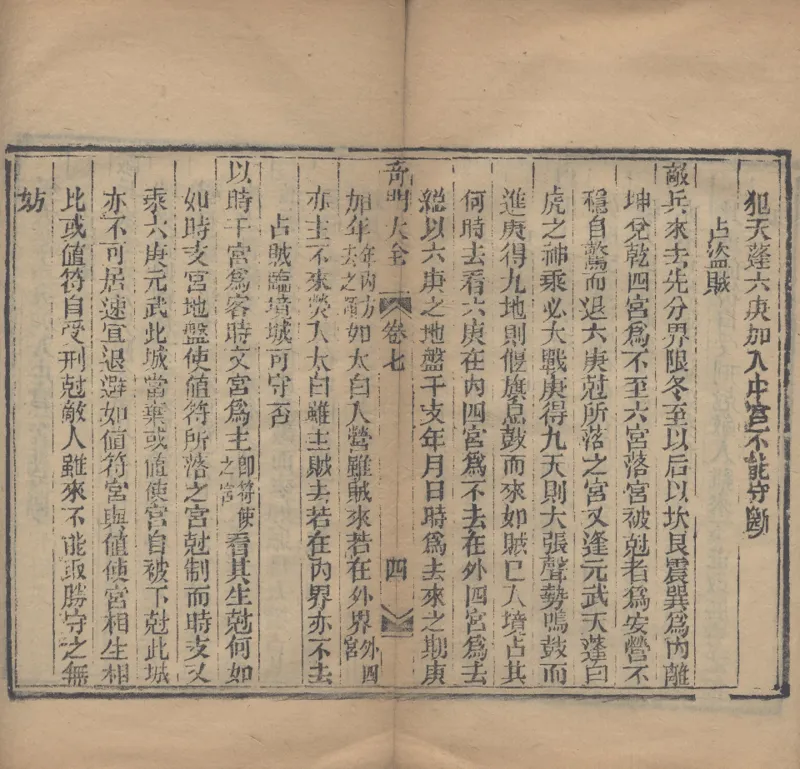 犯天蓬六庚加入中宮不能守斷
占盜賊
敵兵來去先分界限冬至以后以坎艮震巽爲內離
坤兌乾四宮爲不至六宮落宮被尅者爲安營不
穩自驚而退六庚尅所落之宮又逢元武天蓬白
虎之神乘必大戰庚得九天則大張聲勢鳴鼓而
進庚得九地則偃旗息鼓而來如賊已入境占其
何時去看六庚在內四宮爲不去在外四宮爲去
總以六庚之地盤干支年月日時爲去來之期庚
奇門大全 卷七 四
加年年丙方去之類如太白入營雖賊來若在外界外四宮
亦主不來熒入太白雖主賊去若在內界亦不去
占賊臨境城可守否
以時干宮爲客時支宮爲主卽符使之宮看其生尅何如
如時支宮地盤使值符所落之宮尅制而時支又
乘六庚元武此城當棄或值使宮自被下尅此城
亦不可居速宜退避如値符宮與値使宮相生相
比或值符自受刑尅敵人雖來不能取勝守之無
妨